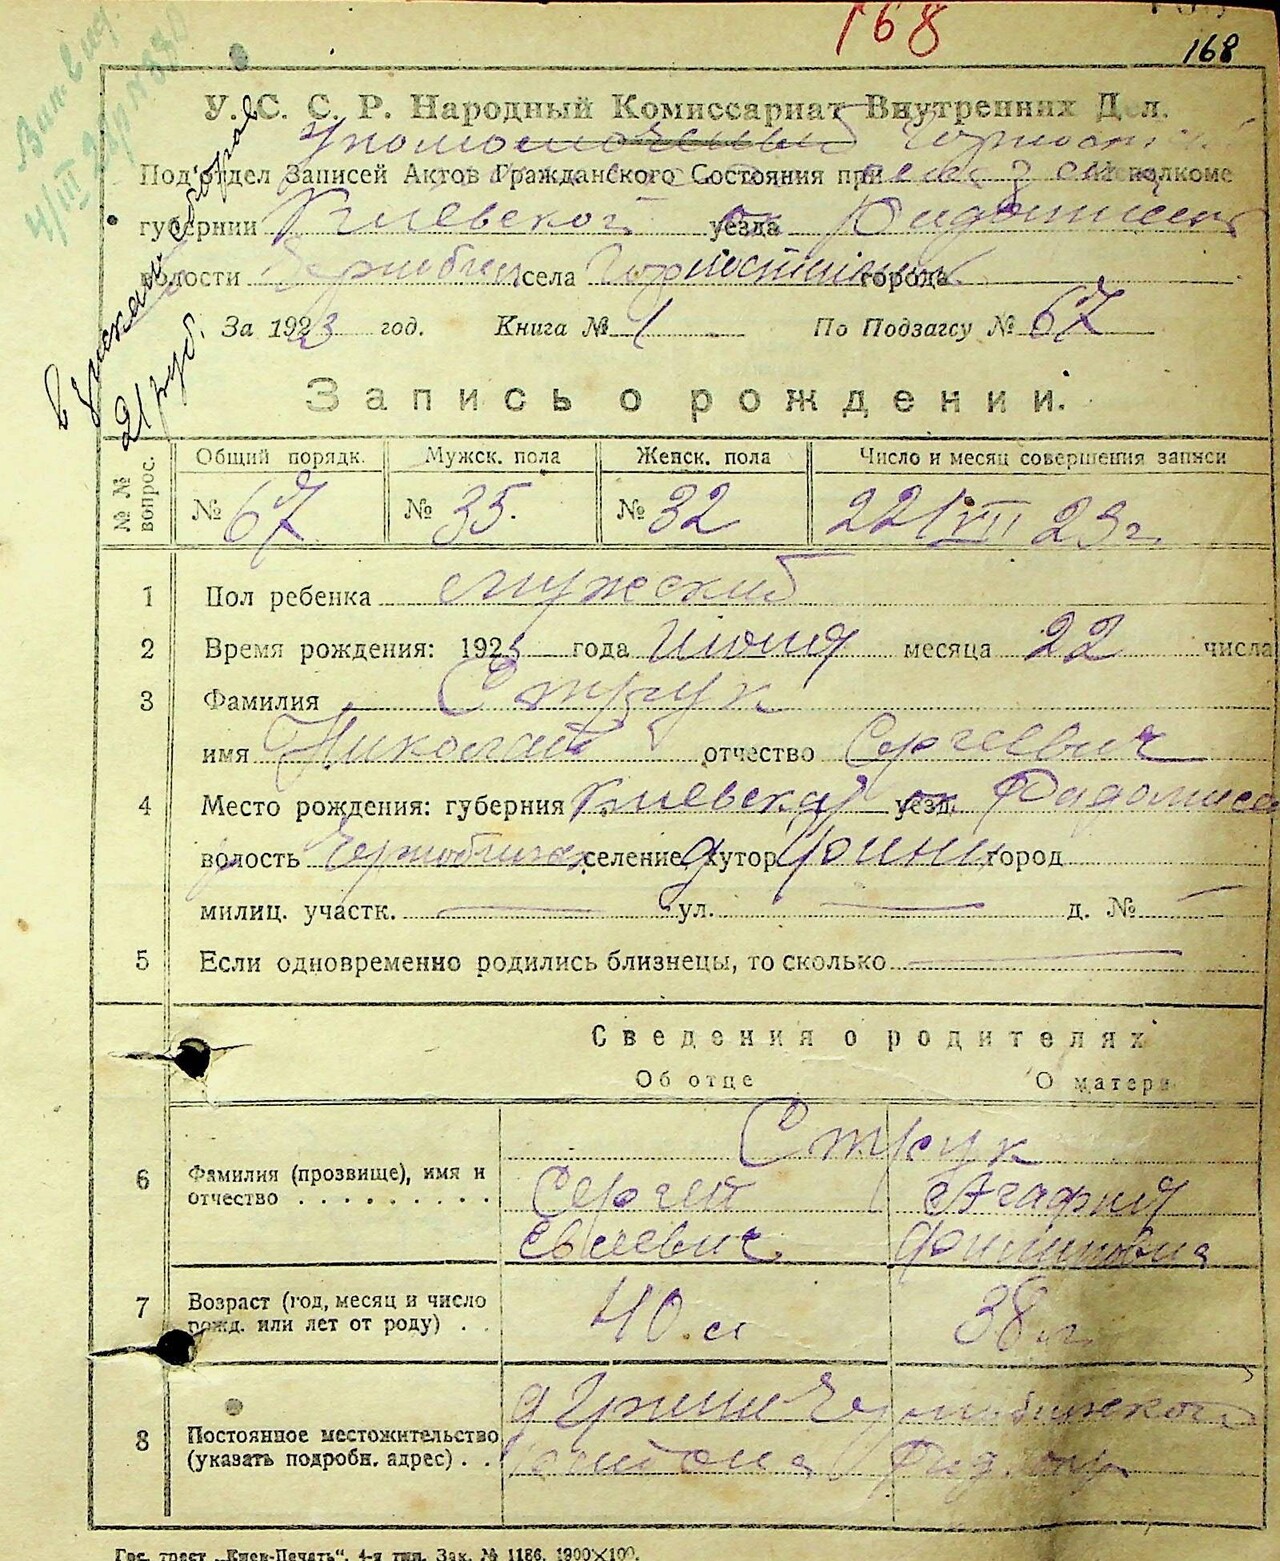 168
168
У. С. С. Р. Народный Комиссариат Внутренних Дел.
Под'отдел Записей Актов Гражданского Состояния при Исполкоме
губернии Киевской уезда
волости села города
За 1923 год. Книга № 1 По Подзагсу № 67
21 руб.
Запись о рождении.
№ № вопрос.
Общий порядк. Мужск. пола Женск. пола Число и месяц совершения записи
№ 67 № 35. № 32 22/VII 23 г.
1 Пол ребенка мужский
2 Время рождения: 1923 года Июля месяца 22 числа
3 Фамилия Струк
имя Николай отчество Сергеевич
4 Место рождения: губерния Киевская уезд.
волость селение, хутор город
милиц. участк. ул. д. №
5 Если одновременно родились близнецы, то сколько
Сведения о родителях
Об отце О матери
Струк
6 Фамилия (прозвище), имя и отчество . . . . . . . . . .
Сергей Агафия
Евсеевич Филиповна
7 Возраст (год, месяц и число рожд. или лет от роду) . .
40 л 38 л
8 Постоянное местожительство (указать подробн. адрес) . .
Гос. трест „Киев-Печать“. 4-я тип. Зак. № 1186. 1900×100.